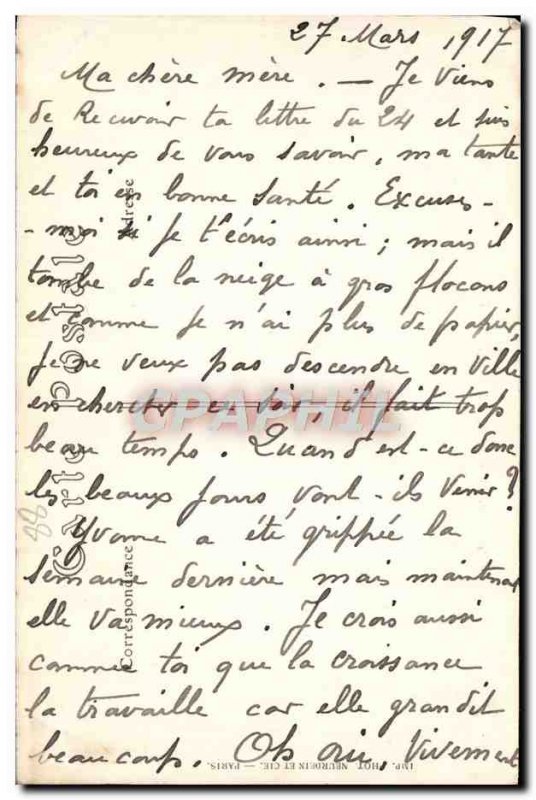 27 Mars 1917
Ma chère mère. — Je viens
de Recevoir ta lettre du 24 et suis
heureux de vous savoir, ma tante
et toi en bonne santé. Excuses-
-moi si Je t'écris ainsi; mais il
tombe de la neige à gros flocons
et comme Je n'ai plus de papier,
Je ne veux pas descendre en Ville
en chercher ce soir, il fait trop
beau temps. Quand est-ce donc
les beaux Jours vont-ils venir?
Yvonne a été grippée la
semaine dernière mais maintenant
elle va mieux. Je crois aussi
comme toi que la croissance
la travaille car elle grandit
beaucoup. Oh oui, Vivement
Carte Postale
Correspondance
Adresse
88
IMP. PHOT. NEURDEIN ET CIE. — PARIS.
CPAPHIL